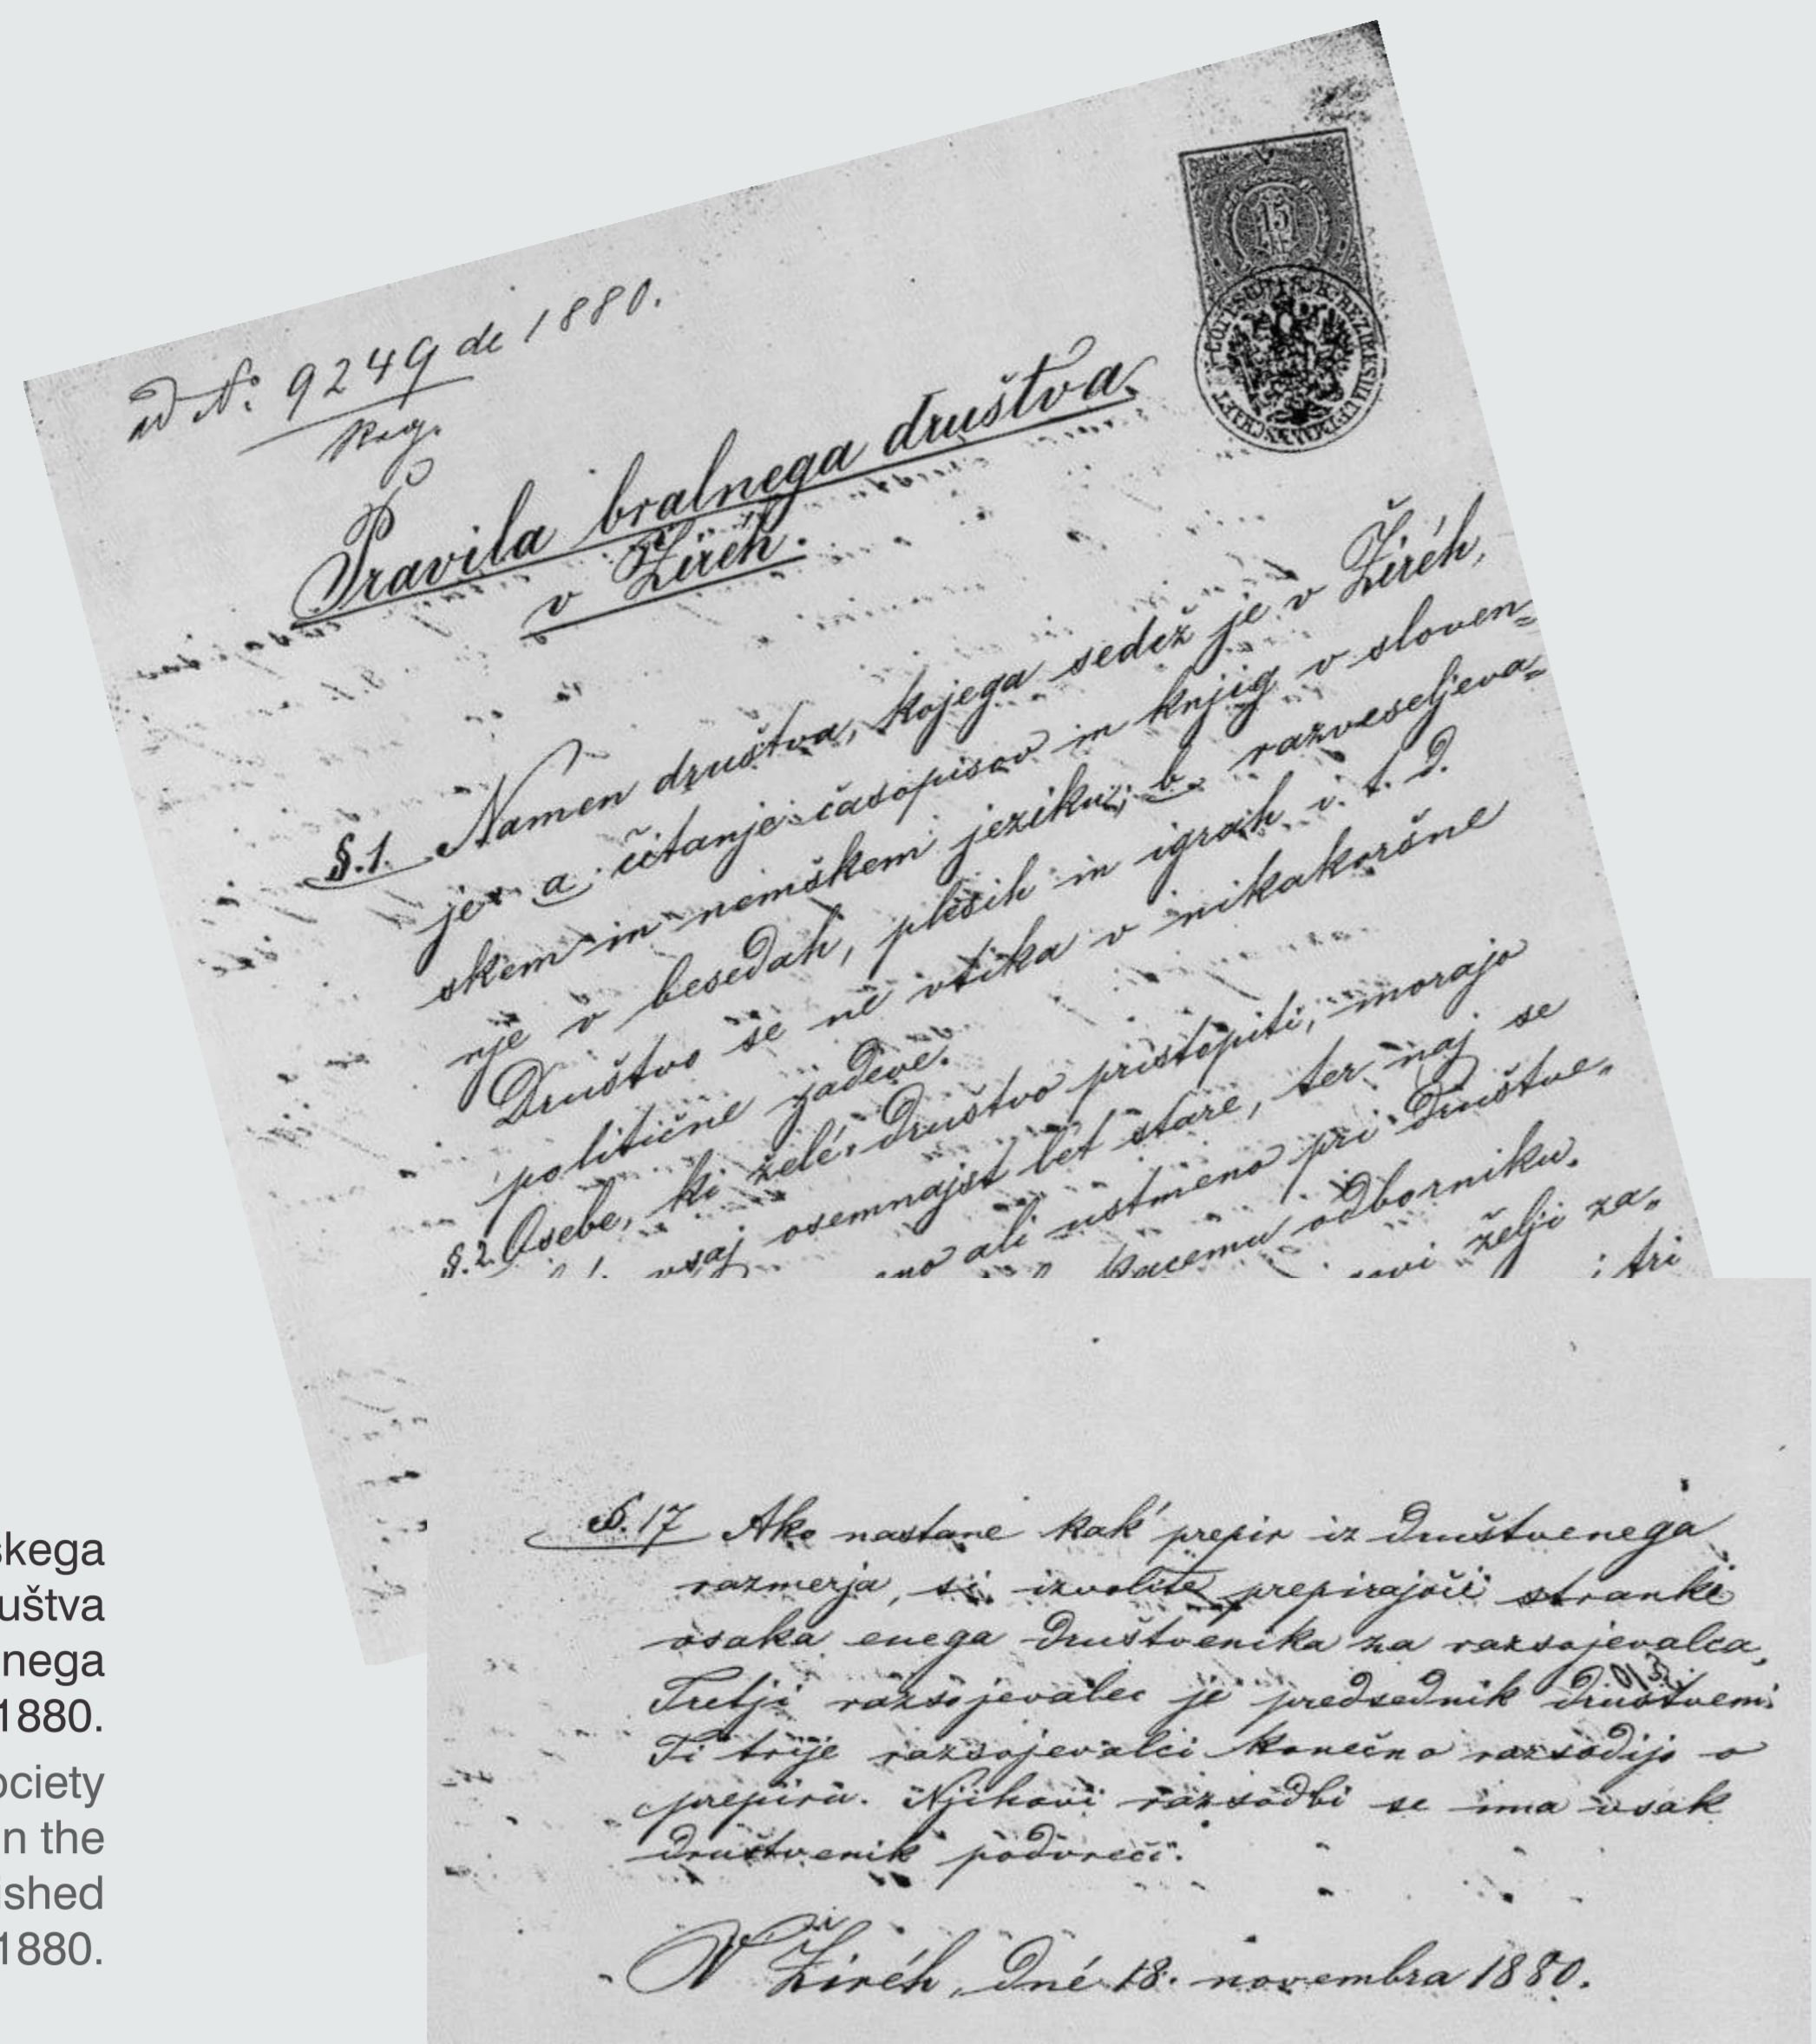 ad No: 9249 de 1880.
Pravila bralnega društva
v Žiréh.
15
§.1. Namen društva, kojega sedež je v Žiréh,
je: a, čitanje časopisov in knjig v sloven=
skem in nemškem jeziku; b. razveseljeva=
nje v besedah, plesih in igrah i. t. d.
Društvo se ne vtika v nikakoršne
politične zadeve.
§.2. Osebe, ki želé društvo pristopiti, morajo
vsaj osemnajst let stare, ter naj se
ali ustmeno pri društve„
odborniku.
želji za„
tri
§.17 Ako nastane kak' prepir iz društvenega
razmerja, si izvolite prepirajoči stranki
vsaka enega društvenika za razsojevalca,
Tretji razsojevalec je predsednik društveni
Ti trije razsojevalci konečno razsodijo o
prepiru. Njihovi razsodbi se ima vsak
društvenik podvreči.
V Žiréh, dné 18. novembra 1880.
skega
uštva
nega
1880.
ociety
n the
shed
1880.